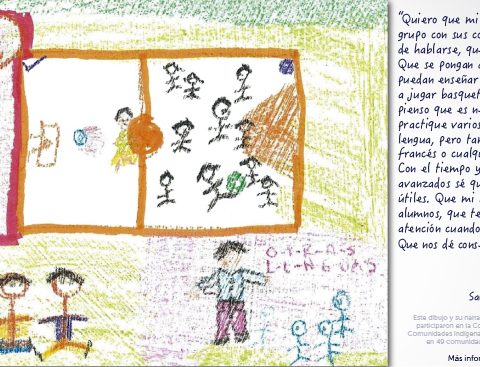 O-T-R-A-S
L-E-N-G-U-A-S.
"Quiero que mi
grupo con sus co
de hablarse, qu
Que se pongan
puedan enseñar
a jugar basquet
pienso que es n
practique varios
lengua, pero ta
francés o cualqu
Con el tiempo y
avanzados sé qu
útiles. Que mi
alumnos, que te
atención cuando
Que nos dé cons
Sa
Este dibujo y su narra
participaron en la Co
Comunidades Indígena
en 49 comunida
Más infor